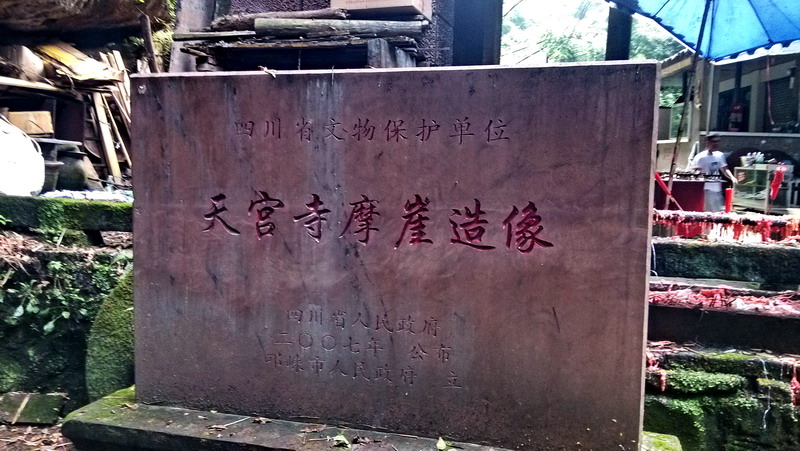 四川省文物保护单位
天宫寺摩崖造像
四川省人民政府
二〇〇七年 公布
邛崃市人民政府 立